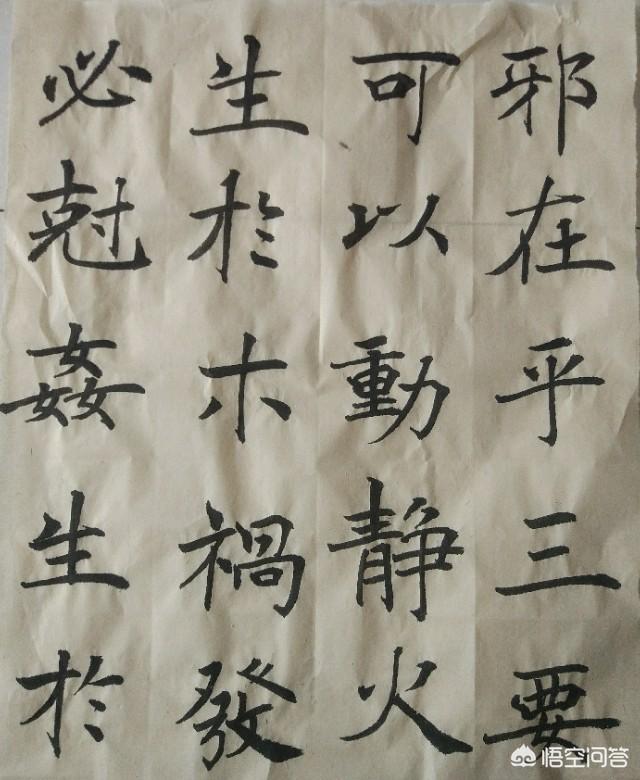 邪在乎三要
可以動静火
生於木禍發
必尅姦生於
悟空问答